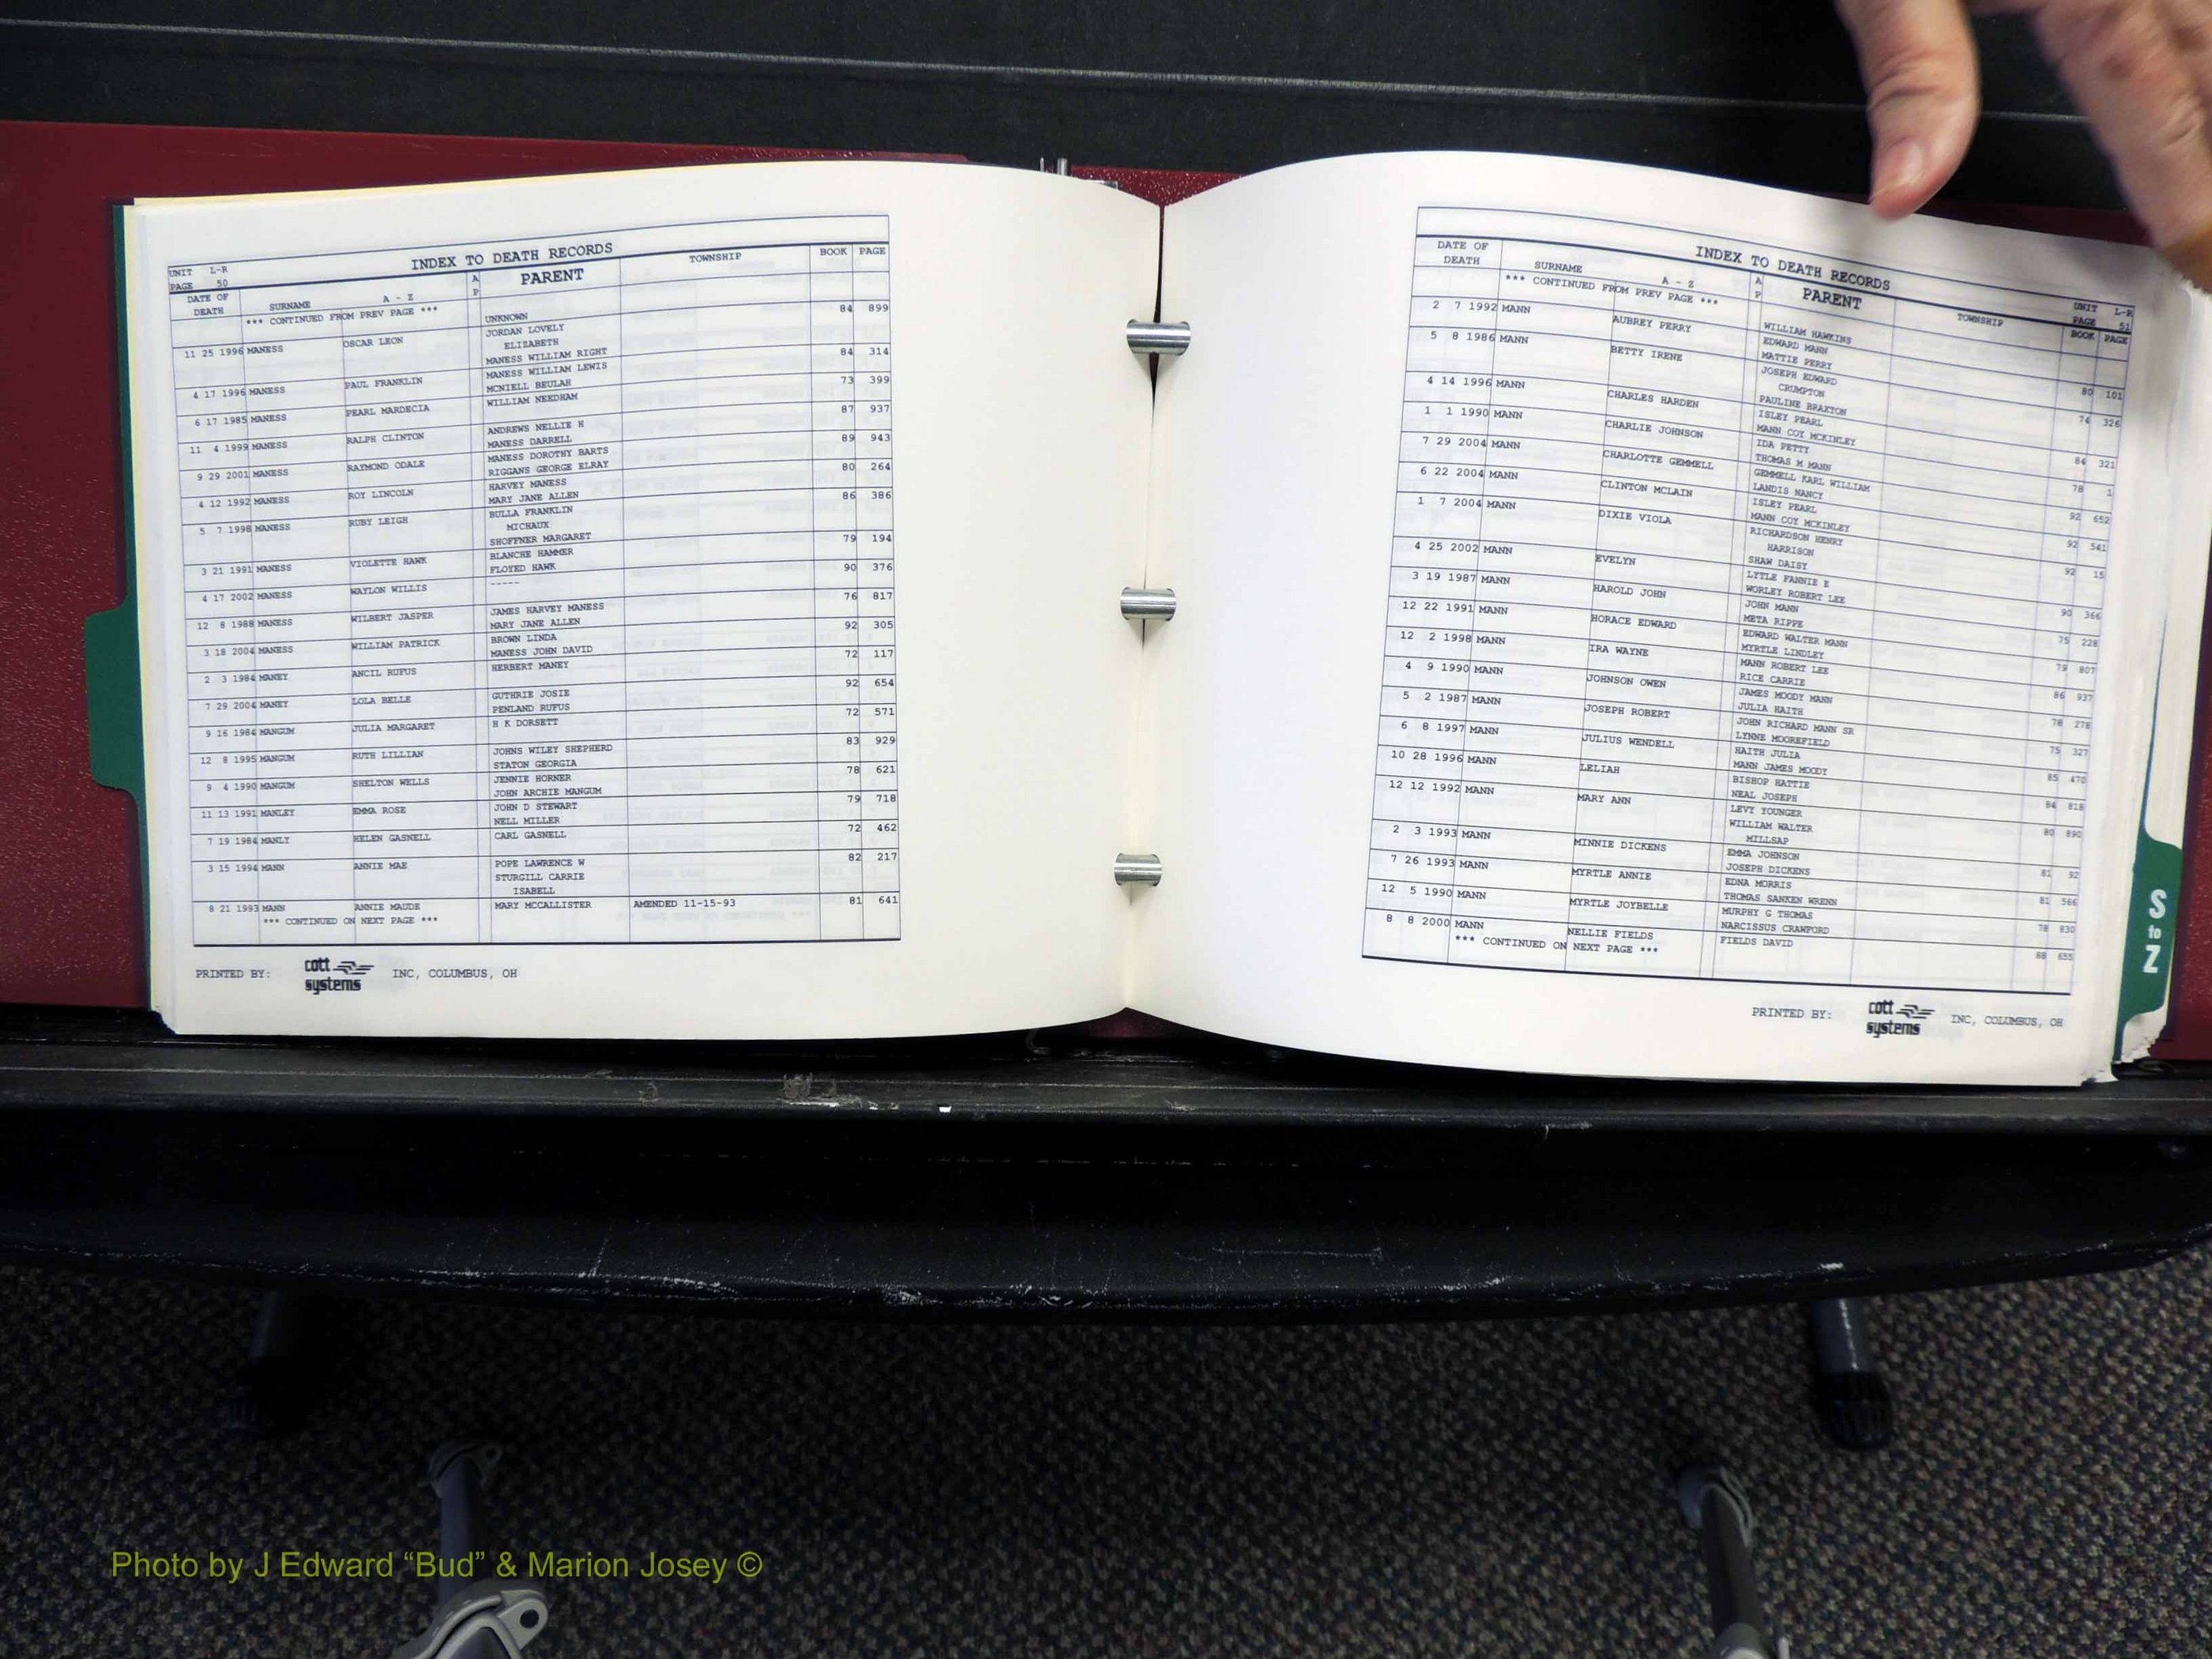 INDEX TO DEATH RECORDS
UNIT L-R
PAGE 50
DATE OF DEATH SURNAME A - Z A P PARENT TOWNSHIP BOOK PAGE
*** CONTINUED FROM PREV PAGE *** UNKNOWN
11 25 1996 MANESS OSCAR LEON JORDAN LOVELY 84 899
ELIZABETH
MANESS WILLIAM RIGHT
4 17 1996 MANESS PAUL FRANKLIN MANESS WILLIAM LEWIS 84 314
MCNIELL BEULAH
6 17 1985 MANESS PEARL MARDECIA WILLIAM NEEDHAM 73 399
11 4 1999 MANESS RALPH CLINTON ANDREWS NELLIE H 87 937
MANESS DARRELL
9 29 2001 MANESS RAYMOND ODALE MANESS DOROTHY BARTS 89 943
RIGGANS GEORGE ELRAY
4 12 1992 MANESS ROY LINCOLN HARVEY MANESS 80 264
MARY JANE ALLEN
5 7 1998 MANESS RUBY LEIGH BULLA FRANKLIN 86 386
MICHAUX
SHOFFNER MARGARET
3 21 1991 MANESS VIOLETTE HAWK BLANCHE HAMMER 79 194
FLOYED HAWK
4 17 2002 MANESS WAYLON WILLIS ----- 90 376
12 8 1988 MANESS WILBERT JASPER JAMES HARVEY MANESS 76 817
MARY JANE ALLEN
3 18 2004 MANESS WILLIAM PATRICK BROWN LINDA 92 305
MANESS JOHN DAVID
2 3 1984 MANEY ANCIL RUFUS HERBERT MANEY 72 117
7 29 2004 MANEY LOLA BELLE GUTHRIE JOSIE 92 654
PENLAND RUFUS
9 16 1984 MANGUM JULIA MARGARET H K DORSETT 72 571
12 8 1995 MANGUM RUTH LILLIAN JOHNS WILEY SHEPHERD 83 929
STATON GEORGIA
9 4 1990 MANGUM SHELTON WELLS JENNIE HORNER 78 621
JOHN ARCHIE MANGUM
11 13 1991 MANLEY EMMA ROSE JOHN D STEWART 79 718
NELL MILLER
7 19 1984 MANLY HELEN GASNELL CARL GASNELL 72 462
3 15 1994 MANN ANNIE MAE POPE LAWRENCE W 82 217
STURGILL CARRIE
ISABELL
8 21 1993 MANN ANNIE MAUDE MARY MCCALLISTER AMENDED 11-15-93 81 641
*** CONTINUED ON NEXT PAGE ***
PRINTED BY: cott systems INC, COLUMBUS, OH
INDEX TO DEATH RECORDS
UNIT L-R
PAGE 51
DATE OF DEATH SURNAME A - Z A P PARENT TOWNSHIP BOOK PAGE
*** CONTINUED FROM PREV PAGE *** WILLIAM HAWKINS
2 7 1992 MANN AUBREY PERRY EDWARD MANN 80 101
MATTIE PERRY
5 8 1986 MANN BETTY IRENE JOSEPH EDWARD 74 326
CRUMPTON
PAULINE BRAXTON
4 14 1996 MANN CHARLES HARDEN ISLEY PEARL 84 321
MANN COY MCKINLEY
1 1 1990 MANN CHARLIE JOHNSON IDA PETTY 78 1
THOMAS M MANN
7 29 2004 MANN CHARLOTTE GEMMELL GEMMELL KARL WILLIAM 92 652
LANDIS NANCY
6 22 2004 MANN CLINTON MCLAIN ISLEY PEARL 92 541
MANN COY MCKINLEY
1 7 2004 MANN DIXIE VIOLA RICHARDSON HENRY 92 15
HARRISON
SHAW DAISY
4 25 2002 MANN EVELYN LYTLE FANNIE E 90 366
WORLEY ROBERT LEE
3 19 1987 MANN HAROLD JOHN JOHN MANN 75 228
META RIPPE
12 22 1991 MANN HORACE EDWARD EDWARD WALTER MANN 79 807
MYRTLE LINDLEY
12 2 1998 MANN IRA WAYNE MANN ROBERT LEE 86 937
RICE CARRIE
4 9 1990 MANN JOHNSON OWEN JAMES MOODY MANN 78 278
JULIA HAITH
5 2 1987 MANN JOSEPH ROBERT JOHN RICHARD MANN SR 75 327
LYNNE MOOREFIELD
6 8 1997 MANN JULIUS WENDELL HAITH JULIA 85 470
MANN JAMES MOODY
10 28 1996 MANN LELIAH BISHOP HATTIE 84 818
NEAL JOSEPH
12 12 1992 MANN MARY ANN LEVY YOUNGER 80 890
WILLIAM WALTER
MILLSAP
2 3 1993 MANN MINNIE DICKENS EMMA JOHNSON 81 92
JOSEPH DICKENS
7 26 1993 MANN MYRTLE ANNIE EDNA MORRIS 81 566
THOMAS SANKEN WRENN
12 5 1990 MANN MYRTLE JOYBELLE MURPHY G THOMAS 78 830
NARCISSUS CRAWFORD
8 8 2000 MANN NELLIE FIELDS FIELDS DAVID 88 655
*** CONTINUED ON NEXT PAGE ***
PRINTED BY: cott systems INC, COLUMBUS, OH
S
to
Z
Photo by J Edward “Bud” & Marion Josey ©